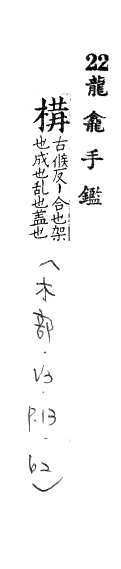 22龍龕手鑑
構古候反丨合也架
也成也乱也蓋也
(木部·V3·p.13·62)